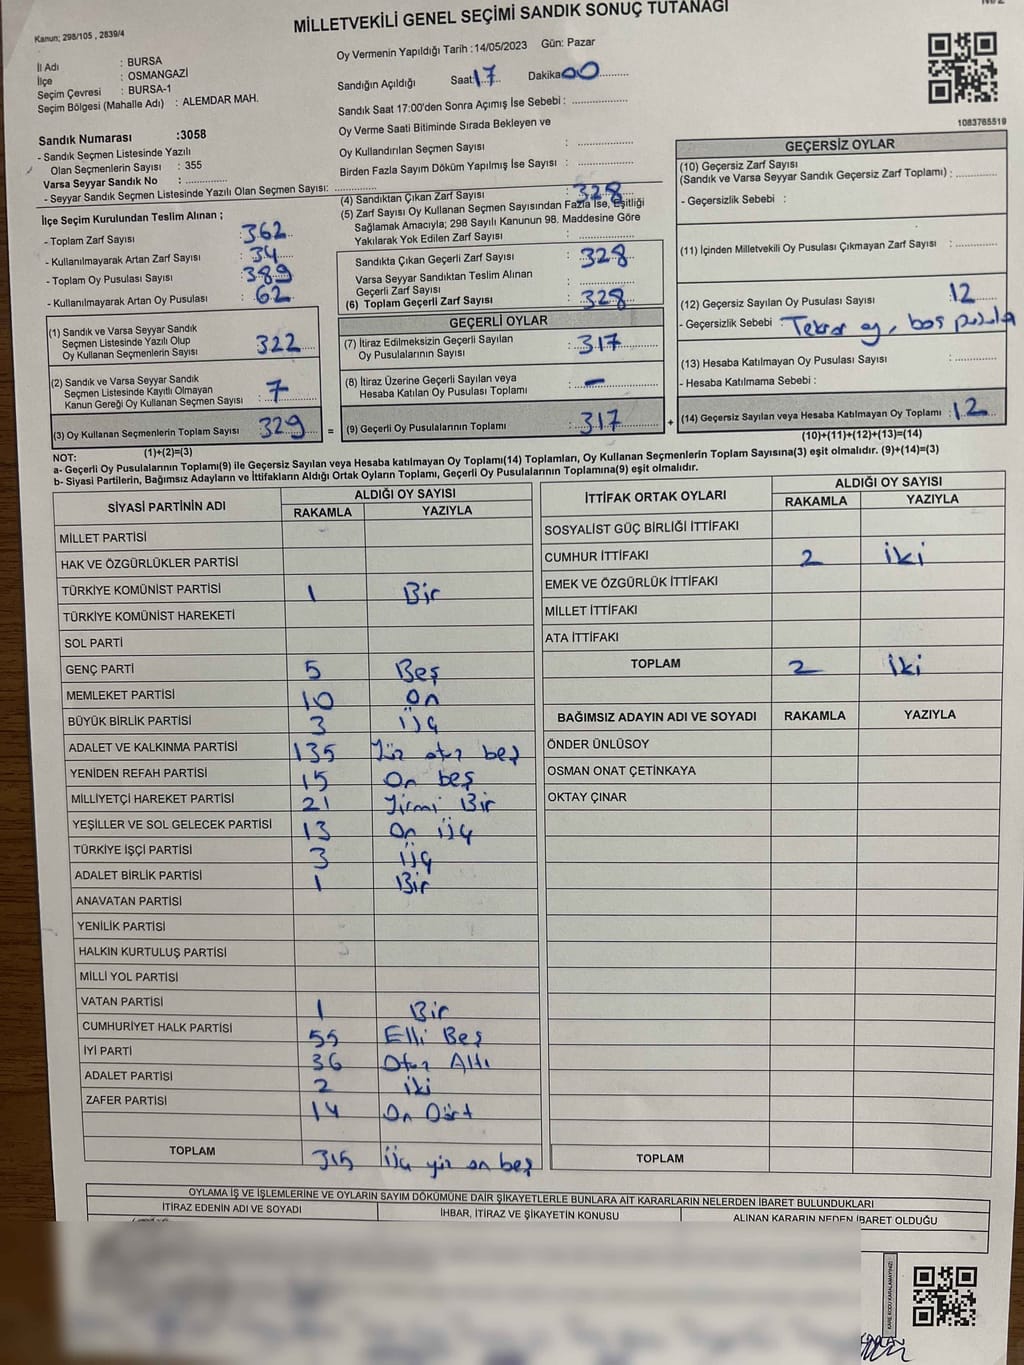 MİLLETVEKİLİ GENEL SEÇİMİ SANDIK SONUÇ TUTANAĞI
Kanun; 298/105 , 2839/4
İl Adı : BURSA
İlçe : OSMANGAZİ
Seçim Çevresi : BURSA-1
Seçim Bölgesi (Mahalle Adı) : ALEMDAR MAH.
Oy Vermenin Yapıldığı Tarih :14/05/2023 Gün: Pazar
Sandığın Açıldığı Saat: 17 Dakika 00
Sandık Saat 17:00'den Sonra Açımış İse Sebebi :
Oy Verme Saati Bitiminde Sırada Bekleyen ve
Oy Kullandırılan Seçmen Sayısı :
Birden Fazla Sayım Döküm Yapılmış İse Sayısı :
1083765519
Sandık Numarası :3058
- Sandık Seçmen Listesinde Yazılı
Olan Seçmenlerin Sayısı : 355
Varsa Seyyar Sandık No :
- Seyyar Sandık Seçmen Listesinde Yazılı Olan Seçmen Sayısı:
İlçe Seçim Kurulundan Teslim Alınan ;
- Toplam Zarf Sayısı : 362
- Kullanılmayarak Artan Zarf Sayısı : 34
- Toplam Oy Pusulası Sayısı : 389
- Kullanılmayarak Artan Oy Pusulası : 62
(1) Sandık ve Varsa Seyyar Sandık
Seçmen Listesinde Yazılı Olup
Oy Kullanan Seçmenlerin Sayısı : 322
(2) Sandık ve Varsa Seyyar Sandık
Seçmen Listesinde Kayıtlı Olmayan
Kanun Gereği Oy Kullanan Seçmen Sayısı : 7
(3) Oy Kullanan Seçmenlerin Toplam Sayısı 329 =
(1)+(2)=(3)
(4) Sandıktan Çıkan Zarf Sayısı : 328
(5) Zarf Sayısı Oy Kullanan Seçmen Sayısından Fazla İse, Eşitliği
Sağlamak Amacıyla; 298 Sayılı Kanunun 98. Maddesine Göre
Yakılarak Yok Edilen Zarf Sayısı :
Sandıkta Çıkan Geçerli Zarf Sayısı : 328
Varsa Seyyar Sandıktan Teslim Alınan
Geçerli Zarf Sayısı :
(6) Toplam Geçerli Zarf Sayısı : 328
GEÇERLİ OYLAR
(7) İtiraz Edilmeksizin Geçerli Sayılan
Oy Pusulalarının Sayısı : 317
(8) İtiraz Üzerine Geçerli Sayılan veya
Hesaba Katılan Oy Pusulası Toplamı : –
(9) Geçerli Oy Pusulalarının Toplamı : 317 +
GEÇERSİZ OYLAR
(10) Geçersiz Zarf Sayısı
(Sandık ve Varsa Seyyar Sandık Geçersiz Zarf Toplamı) :
- Geçersizlik Sebebi :
(11) İçinden Milletvekili Oy Pusulası Çıkmayan Zarf Sayısı :
(12) Geçersiz Sayılan Oy Pusulası Sayısı : 12
- Geçersizlik Sebebi : Tekrar oy, boş pusula
(13) Hesaba Katılmayan Oy Pusulası Sayısı :
- Hesaba Katılmama Sebebi :
(14) Geçersiz Sayılan veya Hesaba Katılmayan Oy Toplamı : 12
(10)+(11)+(12)+(13)=(14)
NOT:
a- Geçerli Oy Pusulalarının Toplamı(9) ile Geçersiz Sayılan veya Hesaba katılmayan Oy Toplamı(14) Toplamları, Oy Kullanan Seçmenlerin Toplam Sayısına(3) eşit olmalıdır. (9)+(14)=(3)
b- Siyasi Partilerin, Bağımsız Adayların ve İttifakların Aldığı Ortak Oyların Toplamı, Geçerli Oy Pusulalarının Toplamına(9) eşit olmalıdır.
SİYASİ PARTİNİN ADI ALDIĞI OY SAYISI
RAKAMLA YAZIYLA
MİLLET PARTİSİ
HAK VE ÖZGÜRLÜKLER PARTİSİ
TÜRKİYE KOMÜNİST PARTİSİ 1 Bir
TÜRKİYE KOMÜNİST HAREKETİ
SOL PARTİ
GENÇ PARTİ 5 Beş
MEMLEKET PARTİSİ 10 On
BÜYÜK BİRLİK PARTİSİ 3 Üç
ADALET VE KALKINMA PARTİSİ 135 Yüz otuz beş
YENİDEN REFAH PARTİSİ 15 On beş
MİLLİYETÇİ HAREKET PARTİSİ 21 Yirmi Bir
YEŞİLLER VE SOL GELECEK PARTİSİ 13 On üç
TÜRKİYE İŞÇİ PARTİSİ 3 Üç
ADALET BİRLİK PARTİSİ 1 Bir
ANAVATAN PARTİSİ
YENİLİK PARTİSİ
HALKIN KURTULUŞ PARTİSİ
MİLLİ YOL PARTİSİ
VATAN PARTİSİ 1 Bir
CUMHURİYET HALK PARTİSİ 55 Elli Beş
İYİ PARTİ 36 Otuz Altı
ADALET PARTİSİ 2 iki
ZAFER PARTİSİ 14 On Dört
TOPLAM 315 Üç yüz on beş
İTTİFAK ORTAK OYLARI ALDIĞI OY SAYISI
RAKAMLA YAZIYLA
SOSYALİST GÜÇ BİRLİĞİ İTTİFAKI
CUMHUR İTTİFAKI 2 iki
EMEK VE ÖZGÜRLÜK İTTİFAKI
MİLLET İTTİFAKI
ATA İTTİFAKI
TOPLAM 2 iki
BAĞIMSIZ ADAYIN ADI VE SOYADI RAKAMLA YAZIYLA
ÖNDER ÜNLÜSOY
OSMAN ONAT ÇETİNKAYA
OKTAY ÇINAR
TOPLAM
OYLAMA İŞ VE İŞLEMLERİNE VE OYLARIN SAYIM DÖKÜMÜNE DAİR ŞİKAYETLERLE BUNLARA AİT KARARLARIN NELERDEN İBARET BULUNDUKLARI
İTİRAZ EDENİN ADI VE SOYADI İHBAR, İTİRAZ VE ŞİKAYETİN KONUSU ALINAN KARARIN NEDEN İBARET OLDUĞU
KARE KODU KARALAMAYINIZ!